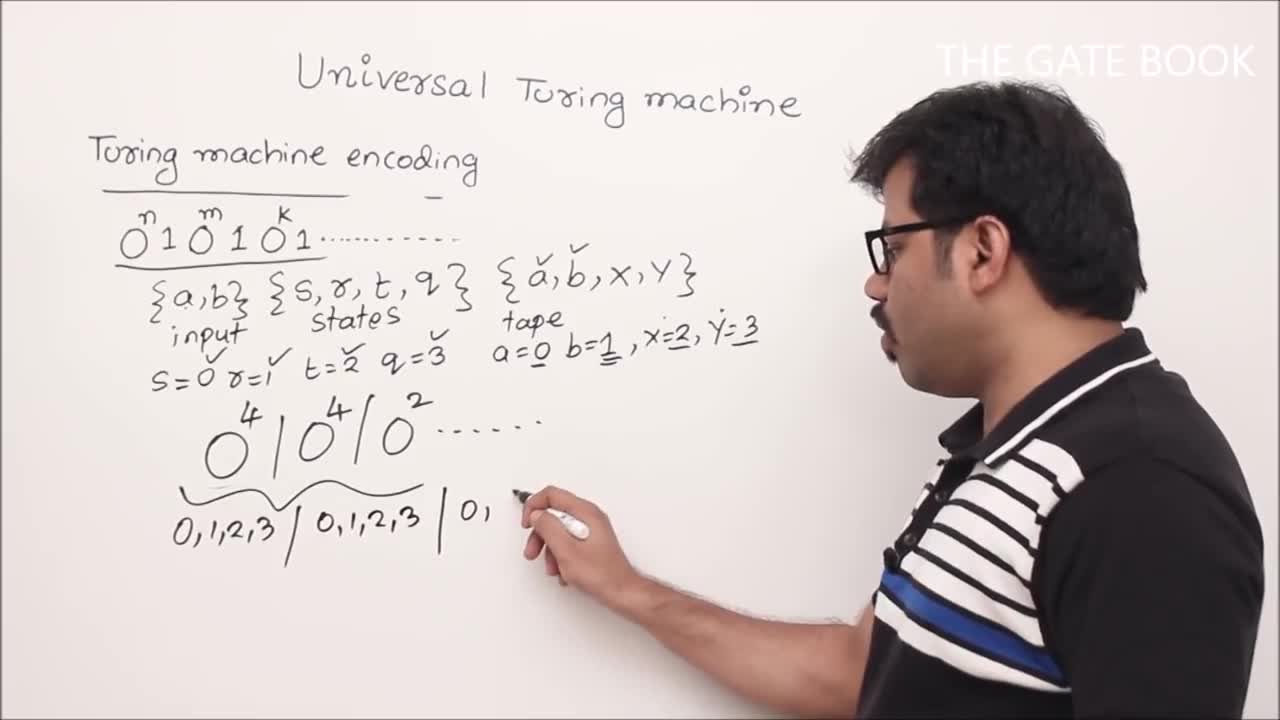 THE GATE BOOK
Universal Turing machine
Turing machine encoding
0ⁿ 1 0ᵐ 1 0ᵏ 1 ..............
{a,b} {s, r, t, q} {a, b, x, y}
input states tape
s=0 r=1 t=2 q=3 a=0 b=1, x=2, y=3
0⁴ | 0⁴ | 0² ......
0,1,2,3 | 0,1,2,3 | 0,